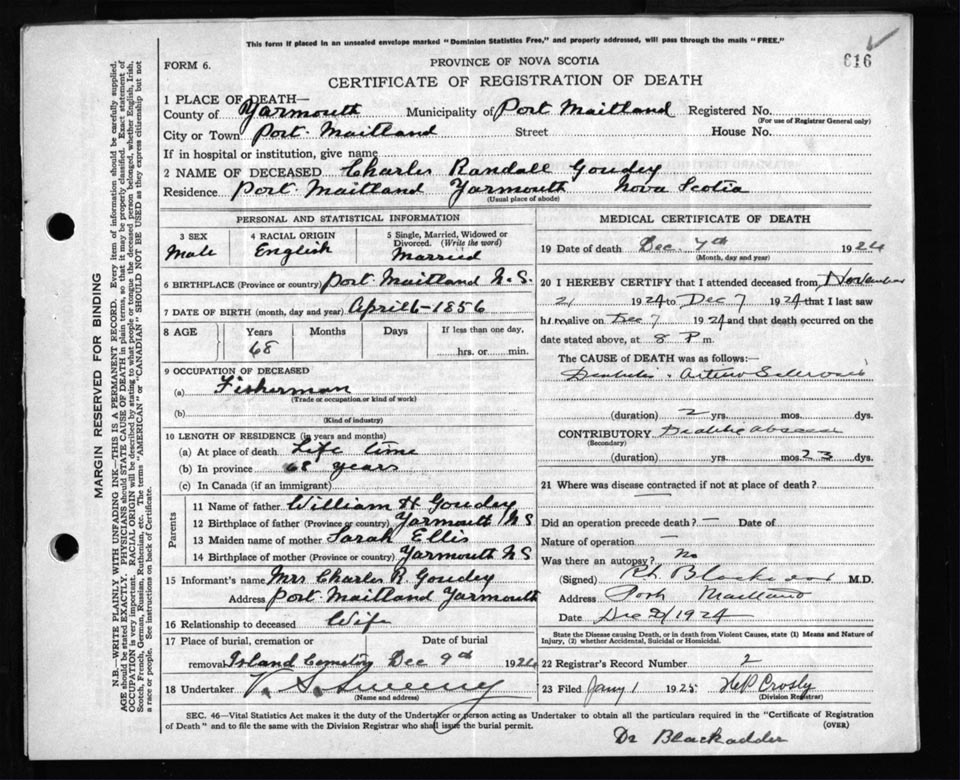 This form if placed in an unsealed envelope marked "Dominion Statistics Free," and properly addressed, will pass through the mails "FREE."
FORM 6.
PROVINCE OF NOVA SCOTIA
616
CERTIFICATE OF REGISTRATION OF DEATH
1 PLACE OF DEATH—
County of Yarmouth Municipality of Port Maitland Registered No.
(For use of Registrar General only)
City or Town Port Maitland Street House No.
If in hospital or institution, give name
2 NAME OF DECEASED Charles Randall Goudey
Residence Port Maitland Yarmouth Nova Scotia
(Usual place of abode)
PERSONAL AND STATISTICAL INFORMATION
3 SEX 4 RACIAL ORIGIN 5 Single, Married, Widowed or Divorced. (Write the word)
Male English Married
6 BIRTHPLACE (Province or country) Port Maitland N.S.
7 DATE OF BIRTH (month, day and year) April 6-1856
8 AGE Years Months Days If less than one day,
68 hrs. or min.
9 OCCUPATION OF DECEASED
(a) Fisherman
(Trade or occupation or kind of work)
(b)
(Kind of industry)
10 LENGTH OF RESIDENCE (in years and months)
(a) At place of death Life time
(b) In province 68 years
(c) In Canada (if an immigrant)
Parents
11 Name of father William H Goudey
12 Birthplace of father (Province or country) Yarmouth N S
13 Maiden name of mother Sarah Ellis
14 Birthplace of mother (Province or country) Yarmouth N S
15 Informant's name Mrs Charles R. Goudey
Address Port Maitland Yarmouth
16 Relationship to deceased Wife
17 Place of burial, cremation or Date of burial
removal Island Cemetery Dec 9th 1924
18 Undertaker V. S. Sweeny
(Name and address)
MEDICAL CERTIFICATE OF DEATH
19 Date of death Dec. 7th 1924
(Month, day and year)
20 I HEREBY CERTIFY that I attended deceased from November
21 1924 to Dec 7 1924 that I last saw
him alive on Dec 7 1924 and that death occurred on the
date stated above, at 8 P m.
The CAUSE OF DEATH was as follows:
Diabetes
(duration) 2 yrs. mos. dys.
CONTRIBUTORY
(Secondary)
(duration) yrs. mos. 23 dys.
21 Where was disease contracted if not at place of death?
Did an operation precede death? — Date of
Nature of operation —
Was there an autopsy? No
(Signed) Blackadar M.D.
Address Port Maitland
Date Dec 1924
State the Disease causing Death, or in death from Violent Causes, state (1) Means and Nature of
Injury, (2) whether Accidental, Suicidal or Homicidal.
22 Registrar's Record Number 2
23 Filed Jany 1 1925 H P Crosby
(Division Registrar)
SEC. 46—Vital Statistics Act makes it the duty of the Undertaker or person acting as Undertaker to obtain all the particulars required in the "Certificate of Registration
of Death" and to file the same with the Division Registrar who shall issue the burial permit. (OVER)
Dr Blackadder
MARGIN RESERVED FOR BINDING
N.B.—WRITE PLAINLY WITH UNFADING INK—THIS IS A PERMANENT RECORD. Every item of information should be carefully supplied.
AGE should be stated EXACTLY. PHYSICIANS should STATE CAUSE OF DEATH in plain terms, so that it may be properly classified. Exact statement of
OCCUPATION is very important. RACIAL ORIGIN will be described by stating to what people or tongue the deceased person belonged, whether English, Irish,
Scotch, French, German, Russian, Ruthenian, etc. The terms "AMERICAN" or "CANADIAN" SHOULD NOT BE USED as they express citizenship but not
a race or people. See instructions on back of Certificate.